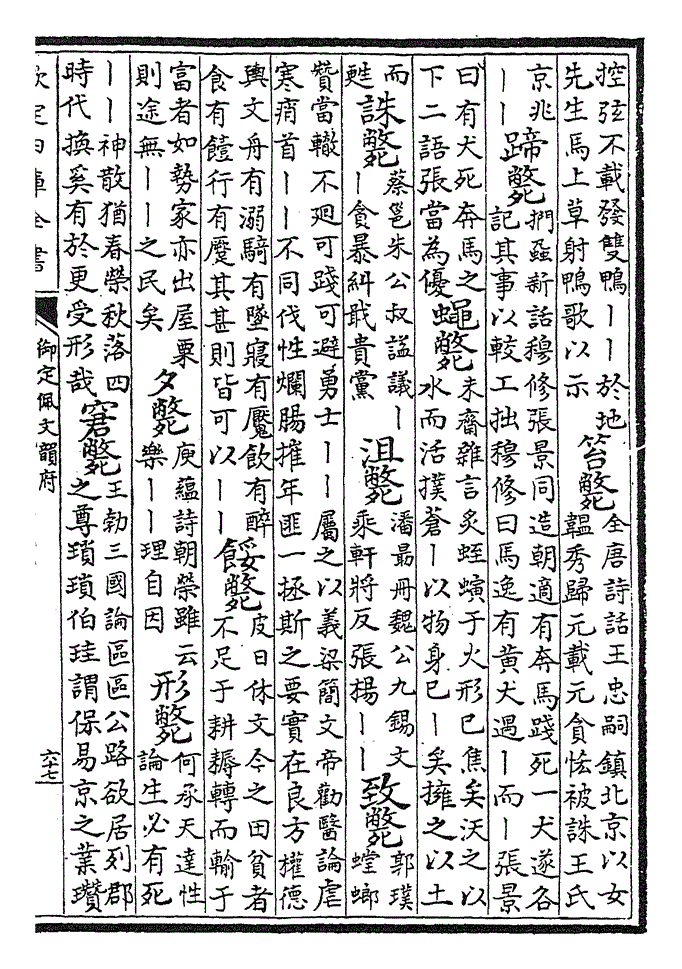 控弦不載發雙鴨丨丨於地
先生馬上草射鴨歌以示
笞斃
全唐詩話王忠嗣鎮北京以女
韞秀歸元載元貪恡被誅王氏
京兆
丨丨
蹄斃
捫蝨新話穆修張景同造朝適有奔馬踐死一犬遂各
記其事以較工拙穆修曰馬逸有黄犬遇丨而丨張景
曰有犬死奔馬之
下二語張當為優
蠅斃
未齋雜言炙蛭蟥于火形已焦矣沃之以
水而活撲蒼丨以物身已丨矣擁之以土
而
甦
誅斃
蔡邕朱公叔謚議丨
丨貪暴糾戢貴黨
沮斃
潘最册魏公九錫文
乘軒將反張揚丨丨
致斃
郭璞
螳螂
贊當轍不廻可踐可避勇士丨丨屬之以義梁簡文帝勸醫論虐
寒痟首丨丨不同伐性爛腸摧年匪一拯斯之要實在良方權德
輿文舟有溺騎有墜寢有魘飲有醉
食有饐行有蹷其甚則皆可以丨丨
餒斃
皮日休文今之田貧者
不足于耕耨轉而輸于
富者如勢家亦出屋粟
則途無丨丨之民矣
夕斃
庾蘊詩朝榮雖云
樂丨丨理自因
形斃
何承天達性
論生必有死
丨丨神散猶春榮秋落四
時代換奚有於更受形哉
窘斃
王勃三國論區區公路欲居列郡
之尊瑣瑣伯珪謂保易京之業瓚
欽定四庫全書
御定佩文韻府
六十七